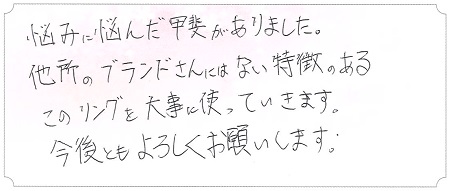 悩みに悩んだ甲斐がありました。
他所のブランドさんにはない特徴のある
このリングを大事に使っていきます。
今後ともよろしくお願いします。